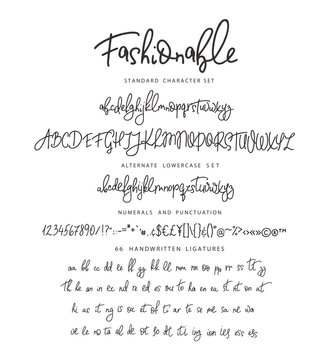 Fashionable
STANDARD CHARACTER SET
abcdefghijklmnopqrstuvwxyz
ABCDEFGHIJKLMNOPQRSTUVWXYZ
ALTERNATE LOWERCASE SET
abcdefghijklmnopqrstuvwxyz
NUMERALS AND PUNCTUATION
1234567890
66 HANDWRITTEN LIGATURES
aa bb cc dd ee ff gg hh ll mm nn oo pp rr ss tt yy
Th he an in er nd re ed es ou to ha en ea st nt on at
hi as it ng is or et of ti ar te se me sa ne wa
ve le no ta al de ot so dt tti ing ion les ess